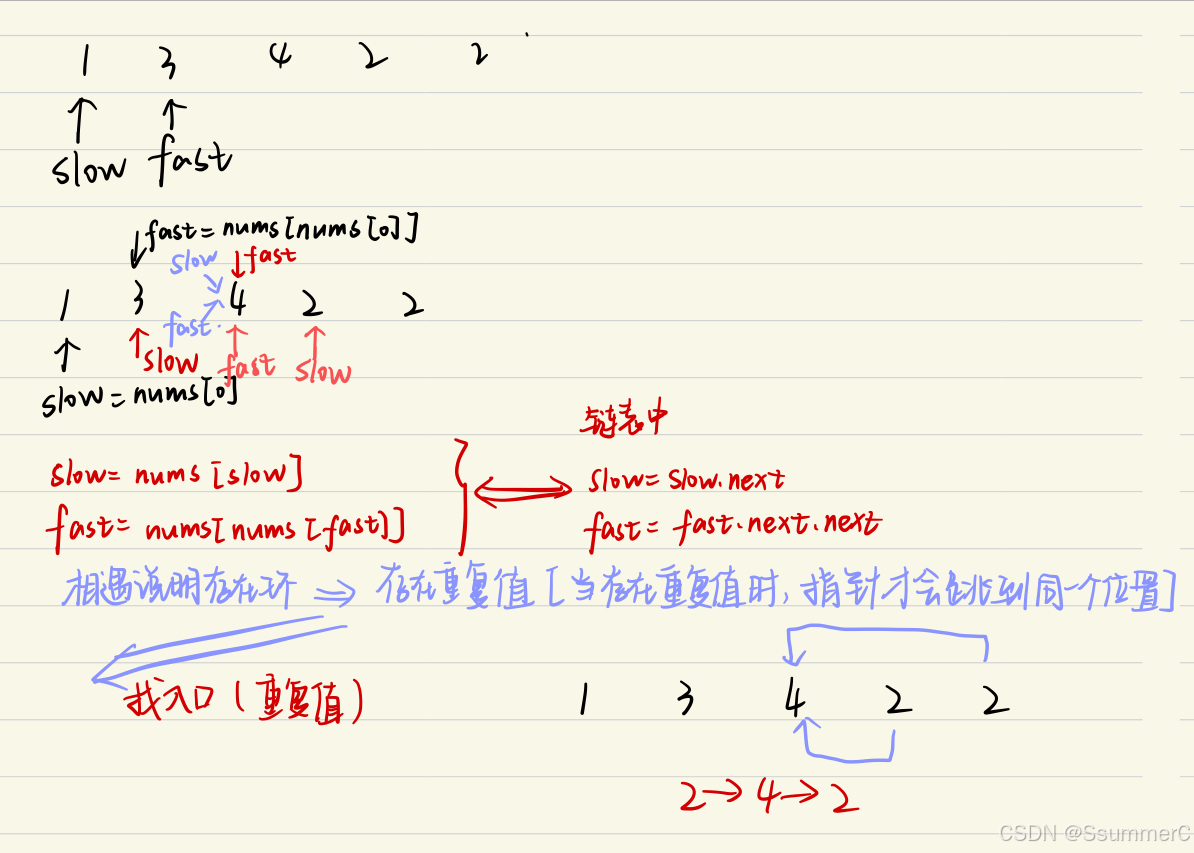 1 3 4 2 2
slow fast
fast = nums[nums[0]]
slow fast
1 3 4 2 2
fast.
slow fast slow
slow = nums[0]
链表中
slow = nums[slow]
slow = slow.next
fast = nums[nums[fast]]
fast = fast.next.next
相遇说明存在环 => 存在重复值 [当存在重复值时, 指针才会跳到同一个位置]
找入口 (重复值)
1 3 4 2 2
2 → 4 → 2
CSDN @SsummerC